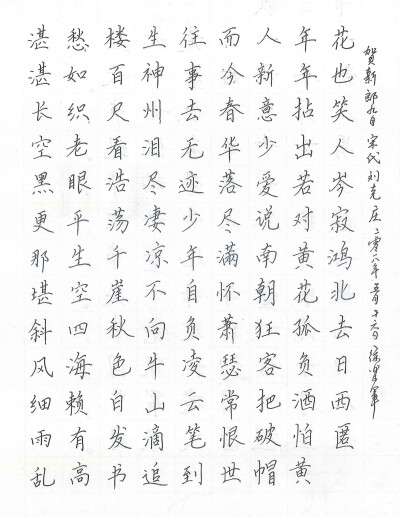 湛湛长空黑更那堪斜风细雨乱
愁如织老眼平生空四海赖有高
楼百尺看浩荡千崖秋色白发书
生神州泪尽凄凉不向牛山滴追
往事去无迹少年自负凌云笔到
而今春华落尽满怀萧瑟常恨世
人新意少爱说南朝狂客把破帽
年年拈出若对黄花孤负酒怕黄
花也笑人岑寂鸿北去日西匿
贺新郎九日 宋代刘克庄 二零一六年五月十六日 徐军